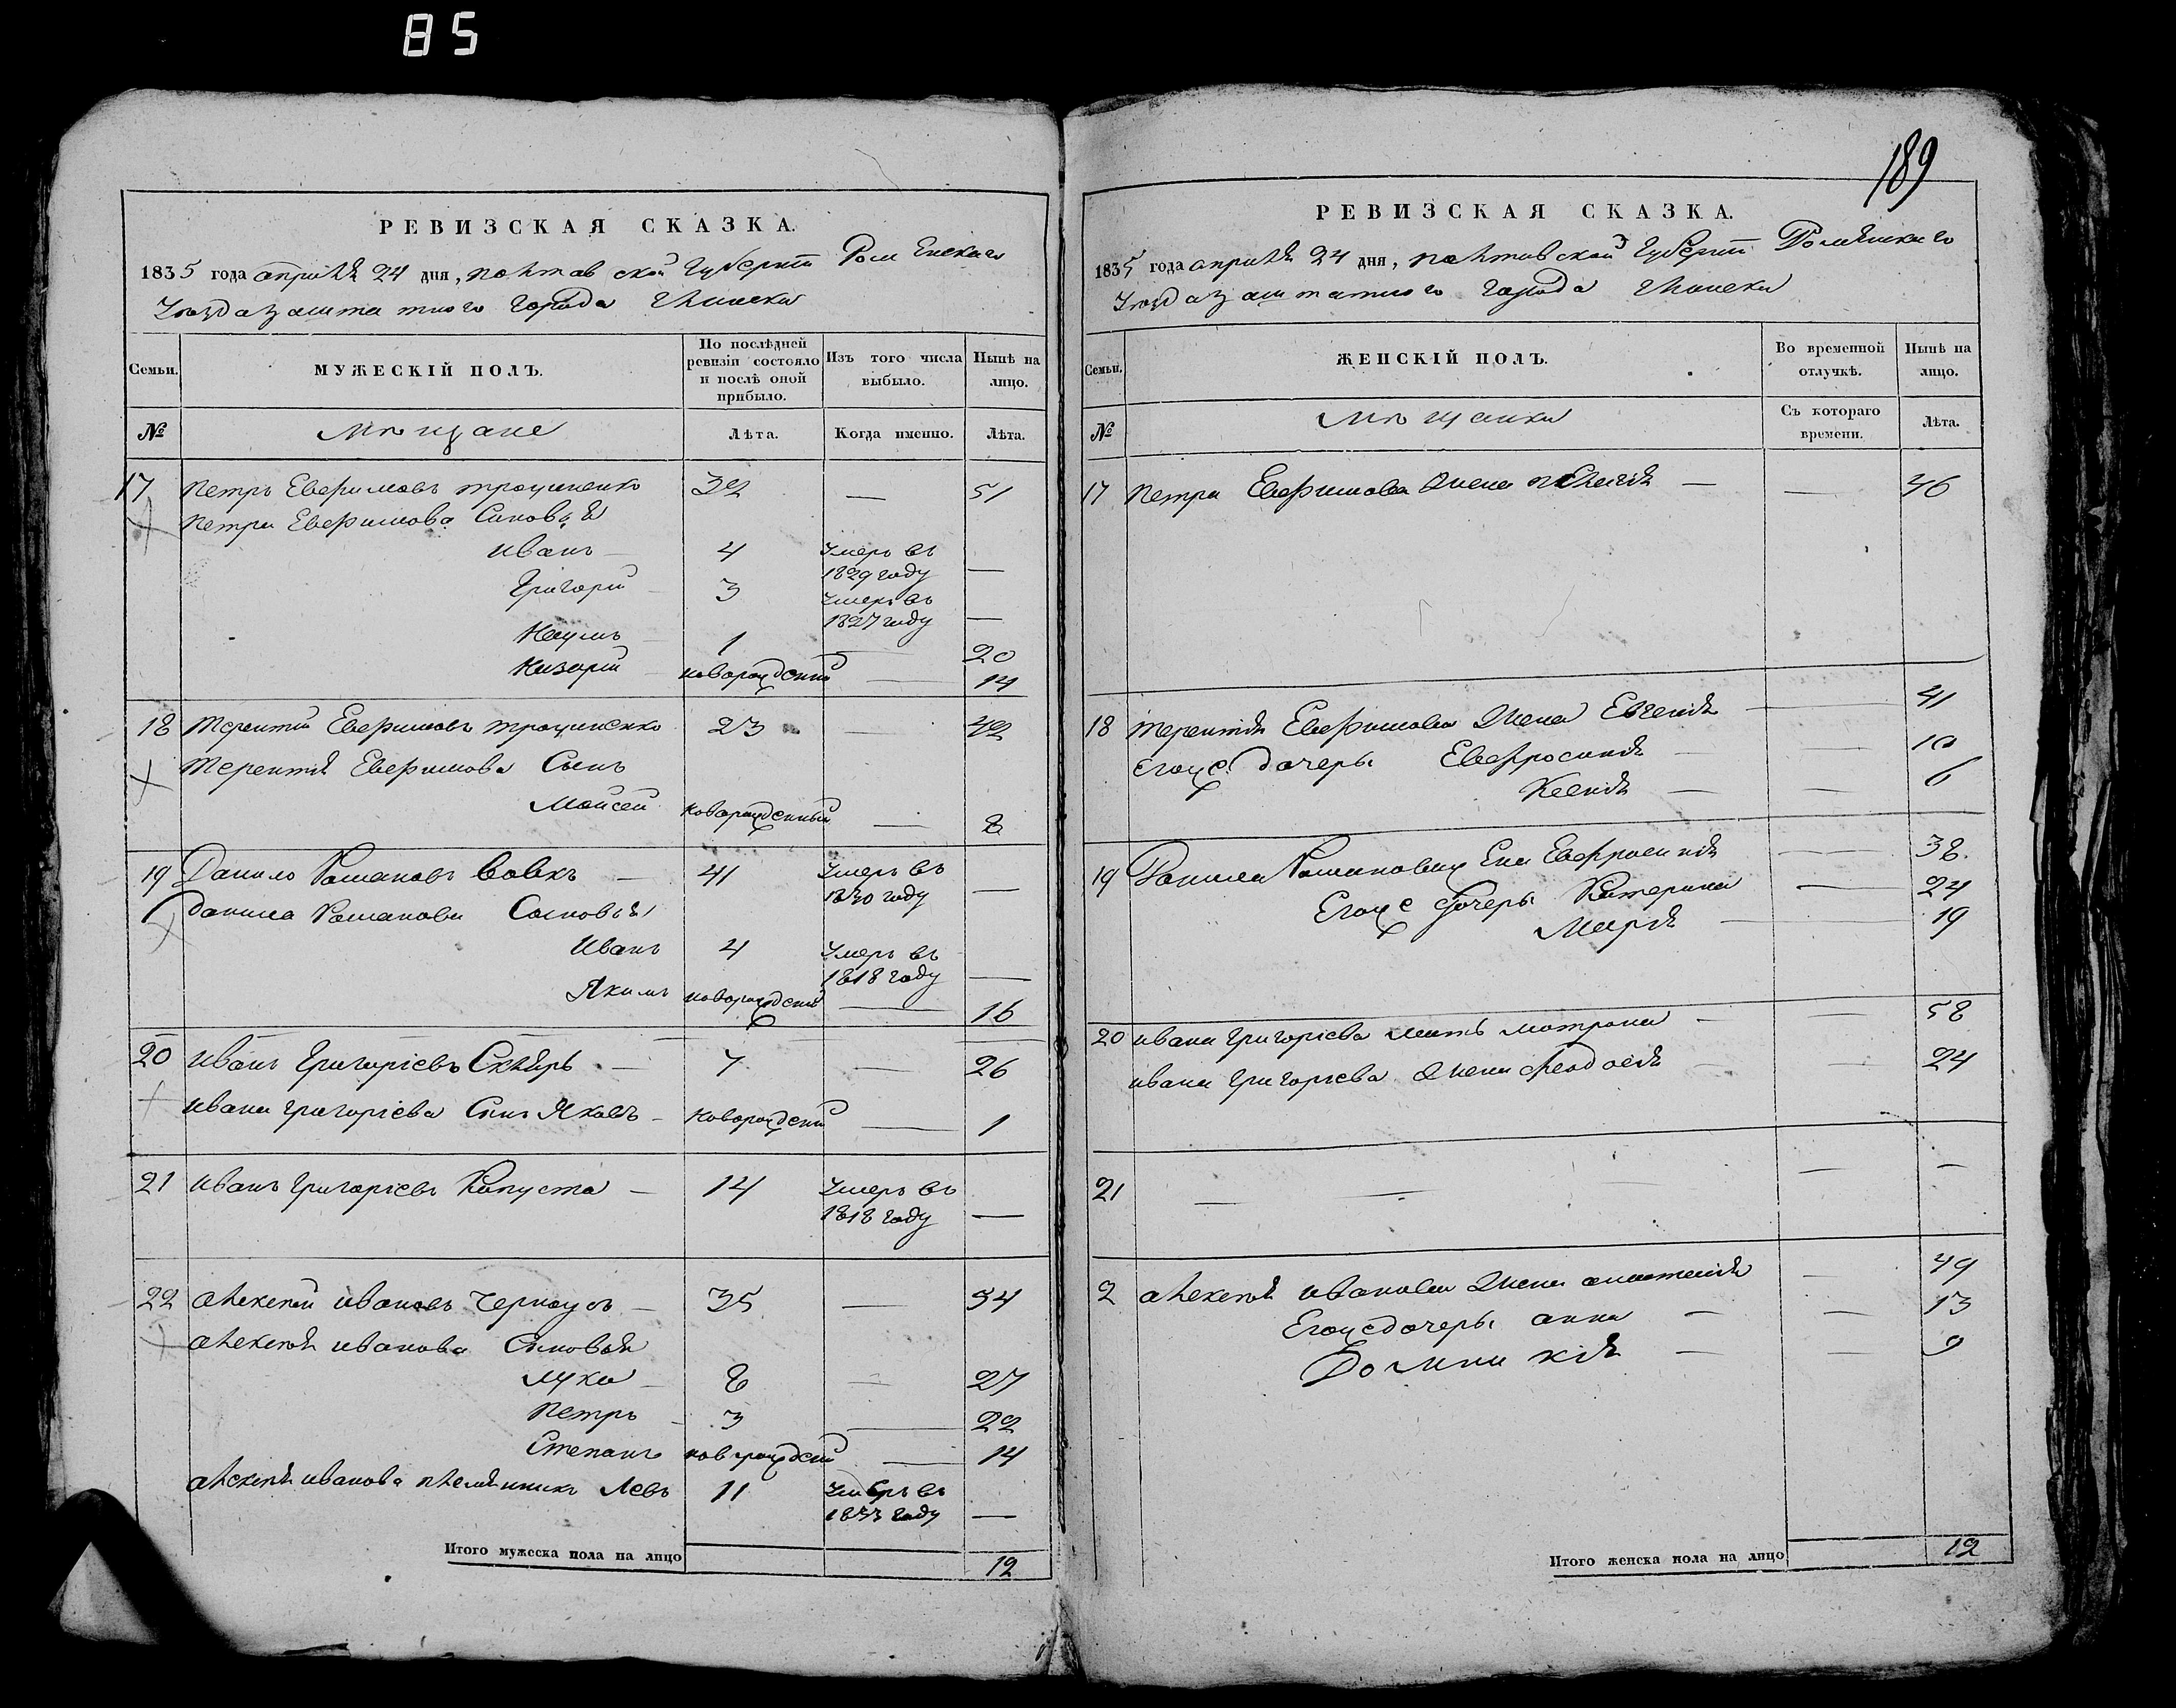 85
РЕВИЗСКАЯ СКАЗКА.
1835 года апрѣля 24 дня, полтавской губерніи Роменскаго
уѣзда заштатнаго города Глинска
Семьи.
МУЖЕСКІЙ ПОЛЪ.
По послѣдней ревизіи состояло и послѣ оной прибыло.
Изъ того числа выбыло.
Нынѣ на лицо.
№
мѣщане
Лѣта.
Когда именно.
Лѣта.
17 Петръ Евфимовъ трощиненко 32 — 51
Петра Евфимова Сыновья
иванъ — 4 умеръ въ 1829 году —
Григорій — 3 умеръ въ 1827 году —
Наумъ — 1 — 20
Назарій новорожденый — 14
18 терентій Евфимовъ трощиненко 23 — 42
терентія Евфимова Сынъ
Моисей новорожденный — 8
19 Данило Романовъ Вовкъ — 41 умеръ въ 1830 году —
данила Романова Сыновья
Иванъ 4 умеръ въ 1818 году —
Якимъ новорожденый — 16
20 иванъ Григоріевъ Скляръ — 7 — 26
ивана григоріева Сынъ Яковъ — новорожденый — 1
21 иванъ григоріевъ Капуста — 14 умеръ въ 1818 году —
22 алексѣй ивановъ Черноусъ — 35 — 54
алексѣя иванова Сыновья
лука — 8 — 27
Петръ — 3 — 22
Степанъ новорожденый — 14
алексѣя иванова племянникъ Левъ 11 умеръ въ 1833 году —
Итого мужеска пола на лицо 12
189
РЕВИЗСКАЯ СКАЗКА.
1835 года апрѣля 24 дня, полтавской губерніи Роменскаго
уѣзда заштатнаго города Глинска
Семьи.
ЖЕНСКІЙ ПОЛЪ.
Во временной отлучкѣ.
Нынѣ на лицо.
№
мѣщанки
Съ котораго времени.
Лѣта.
17 Петра Евфимова жена пелагія — — 46
18 терентія Евфимова жена Евгенія — 41
Егоже дочеры Евфросинія — — 10
Ксенія — — 6
19 Данила Романова жена Евфросинія — 38.
Егоже дочеры Катерина — 24
Марія — 19
20 ивана григоріева мать мотрона — — 58
ивана григоріева жена феодосія — — 24
21 — — — —
2 алексѣя иванова жена анастасія — 49
Егоже дочеры анна — — 13
Домникія — — 9
Итого женска пола на лицо 12